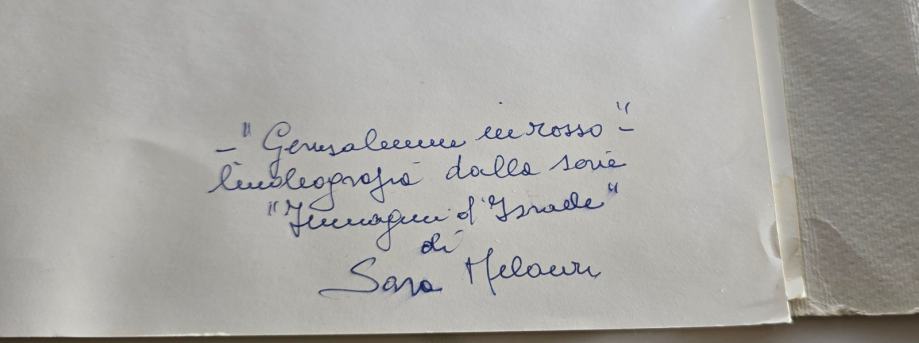 - "Gerusalemme in rosso" -
linoleografia dalla serie
"Immagini d'Israele"
di
Sara